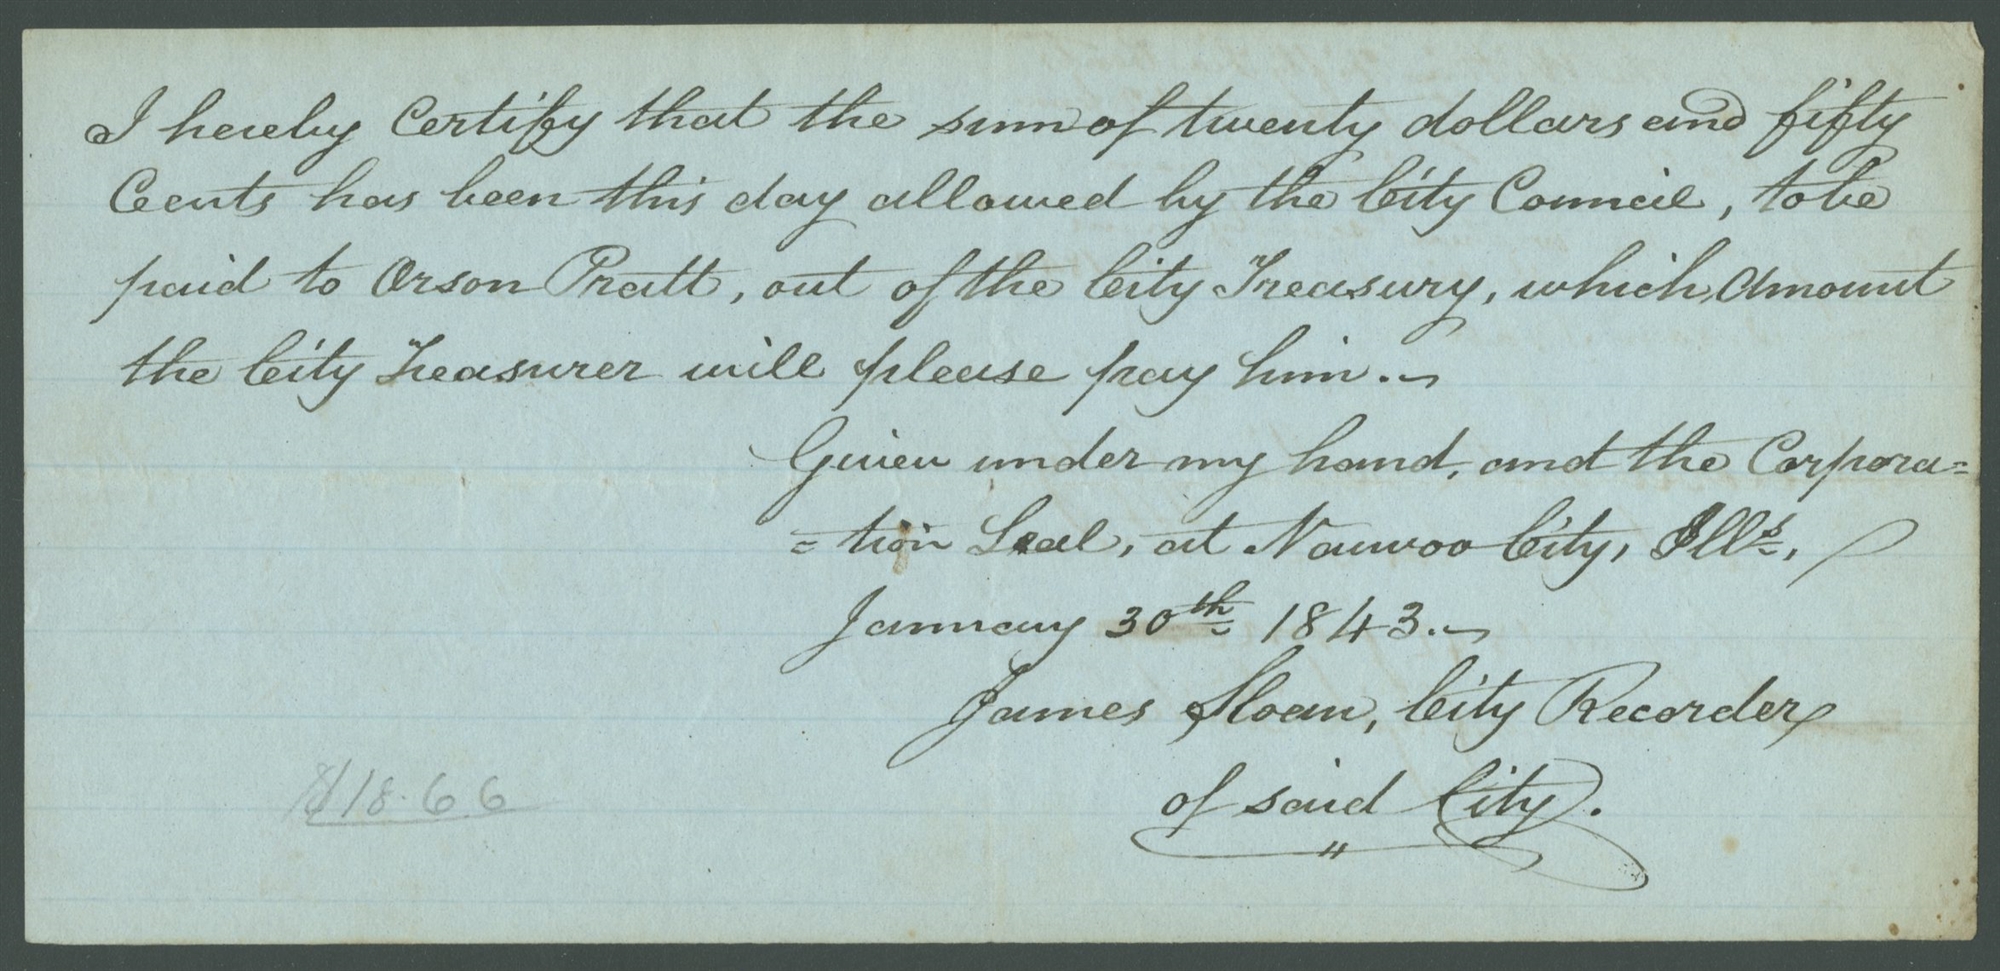 I hereby Certify that the sum of twenty dollars and fifty
Cents has been this day allowed by the City Council, to be
paid to Orson Pratt, out of the City Treasury, which Amount
the City Treasurer will please pay him.
Given under my hand, and the Corpora=
=tion Seal, at Nauvoo City, Ills,
January 30th 1843.
James Sloan, City Recorder
of said City.
$18.66